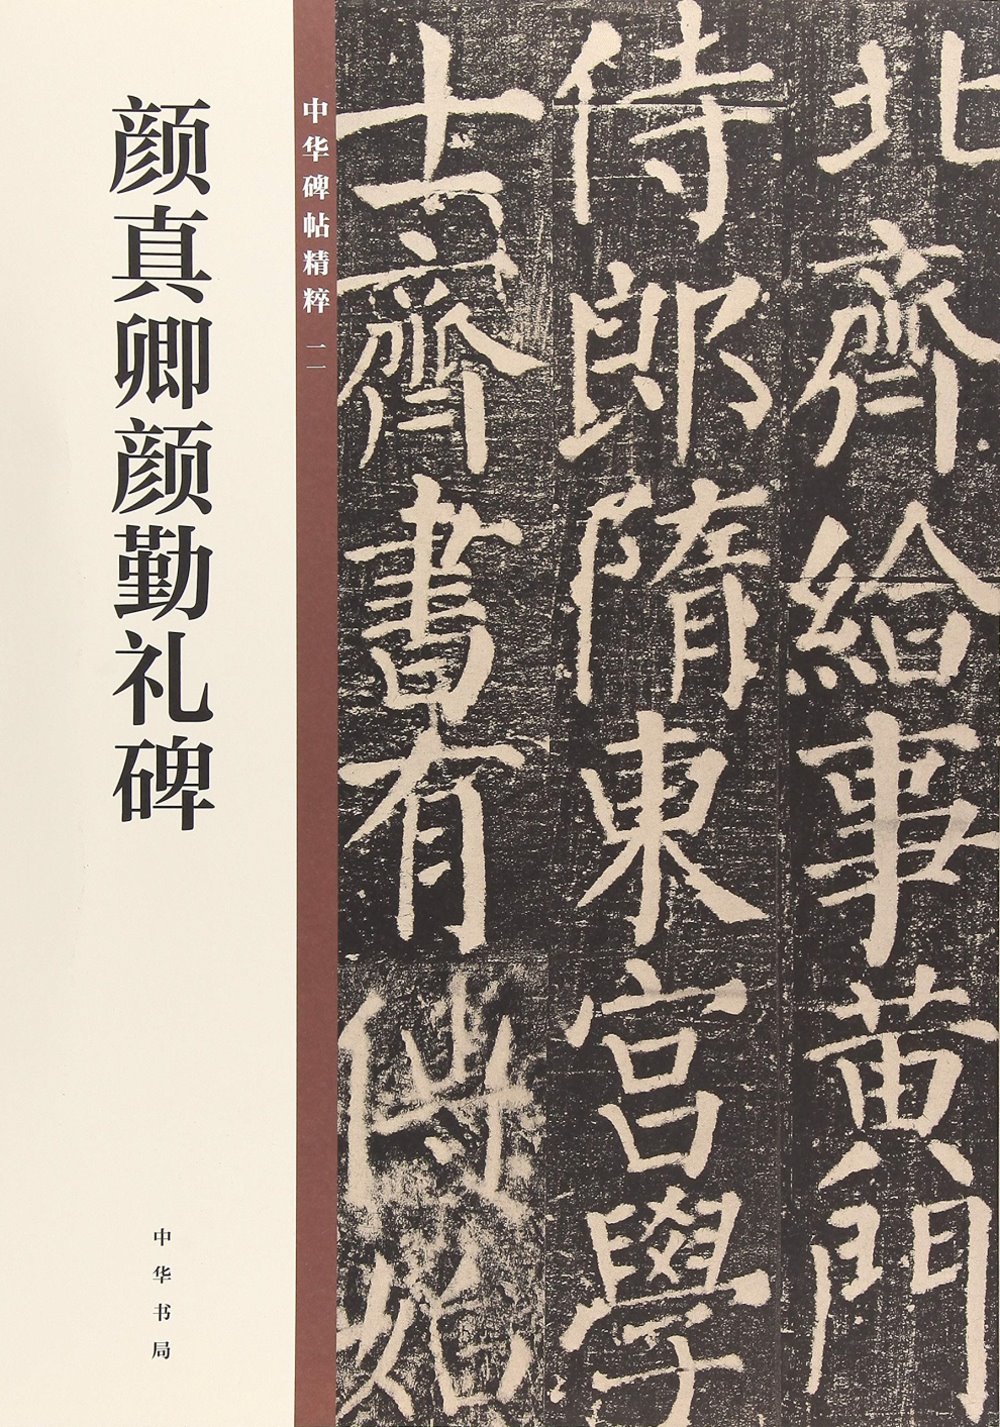 颜真卿颜勤礼碑
中华书局
中华碑帖精粹 二
北齊給事黄門
侍郎隋東宫學
士齊書有傳始